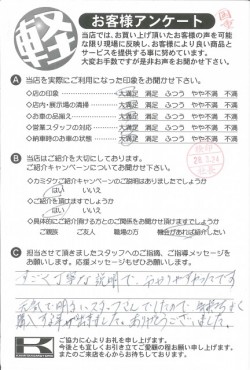 軽
お客様アンケート
当店では、お買い上げ頂いたお客様の声を可能
な限り現場に反映し、お客様により良い商品と
サービスを提供する事に努めています。
大変お手数ですが是非お声をお聞かせ下さい。
A 当店を実際にご利用になった印象をお聞かせ下さい。
◇店の印象 大満足 満足 ふつう やや不満 不満
◇店内・展示場の清掃 大満足 満足 ふつう やや不満 不満
◇お車の品揃え 大満足 満足 ふつう やや不満 不満
◇営業スタッフの対応 大満足 満足 ふつう やや不満 不満
◇納車時のお車の状態 大満足 満足 ふつう やや不満 不満
B 当店はご紹介を大切にしております。
ご紹介キャンペーンについてお聞かせ下さい。
◇カミタケご紹介キャンペーンのご説明はありましたでしょうか
はい いいえ
◇ご紹介を頂けますでしょうか
はい いいえ
◇具体的にご紹介頂ける方とのご関係をお聞かせ頂けますでしょうか
ご親族 ご友人 職場の方 機会があれば紹介したい
C 担当させて頂きましたスタッフへのご指摘、ご指導メッセージを
お願いします。応援メッセージもぜひお願いします。
すごく丁寧な説明で、わかりやすかったです
元気で明るいスタッフさんでしたので、気持ちよく
購入する事が出来ました。ありがとうございました。
K
ご協力に心よりお礼を申し上げます。
今後とも宜しくお引き立てご愛顧の程お願い申し上げます。
またのご来店を心からお待ちしております。